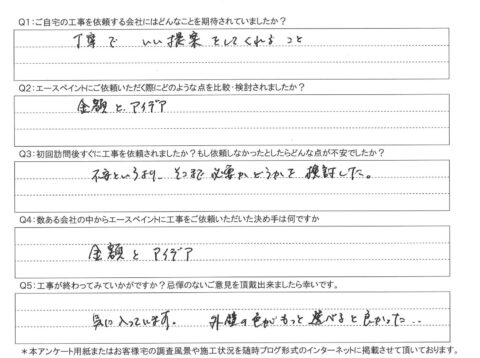 Q1:ご自宅の工事を依頼する会社にはどんなことを期待されていましたか?
丁寧で いい提案をしてくれること
Q2:エースペイントにご依頼いただく際にどのような点を比較・検討されましたか?
金額と、アイデア
Q3:初回訪問後すぐに工事を依頼されましたか?もし依頼しなかったとしたらどんな点が不安でしたか?
不安というより、そこまで必要かどうかを検討した。
Q4:数ある会社の中からエースペイントに工事をご依頼いただいた決め手は何ですか
金額と アイデア
Q5:工事が終わってみていかがですか?忌憚のないご意見を頂戴出来ましたら幸いです。
気に入っています。 外壁の色がもっと選べると良かった...
*本アンケート用紙またはお客様宅の調査風景や施工状況を随時ブログ形式のインターネットに掲載させて頂いております。